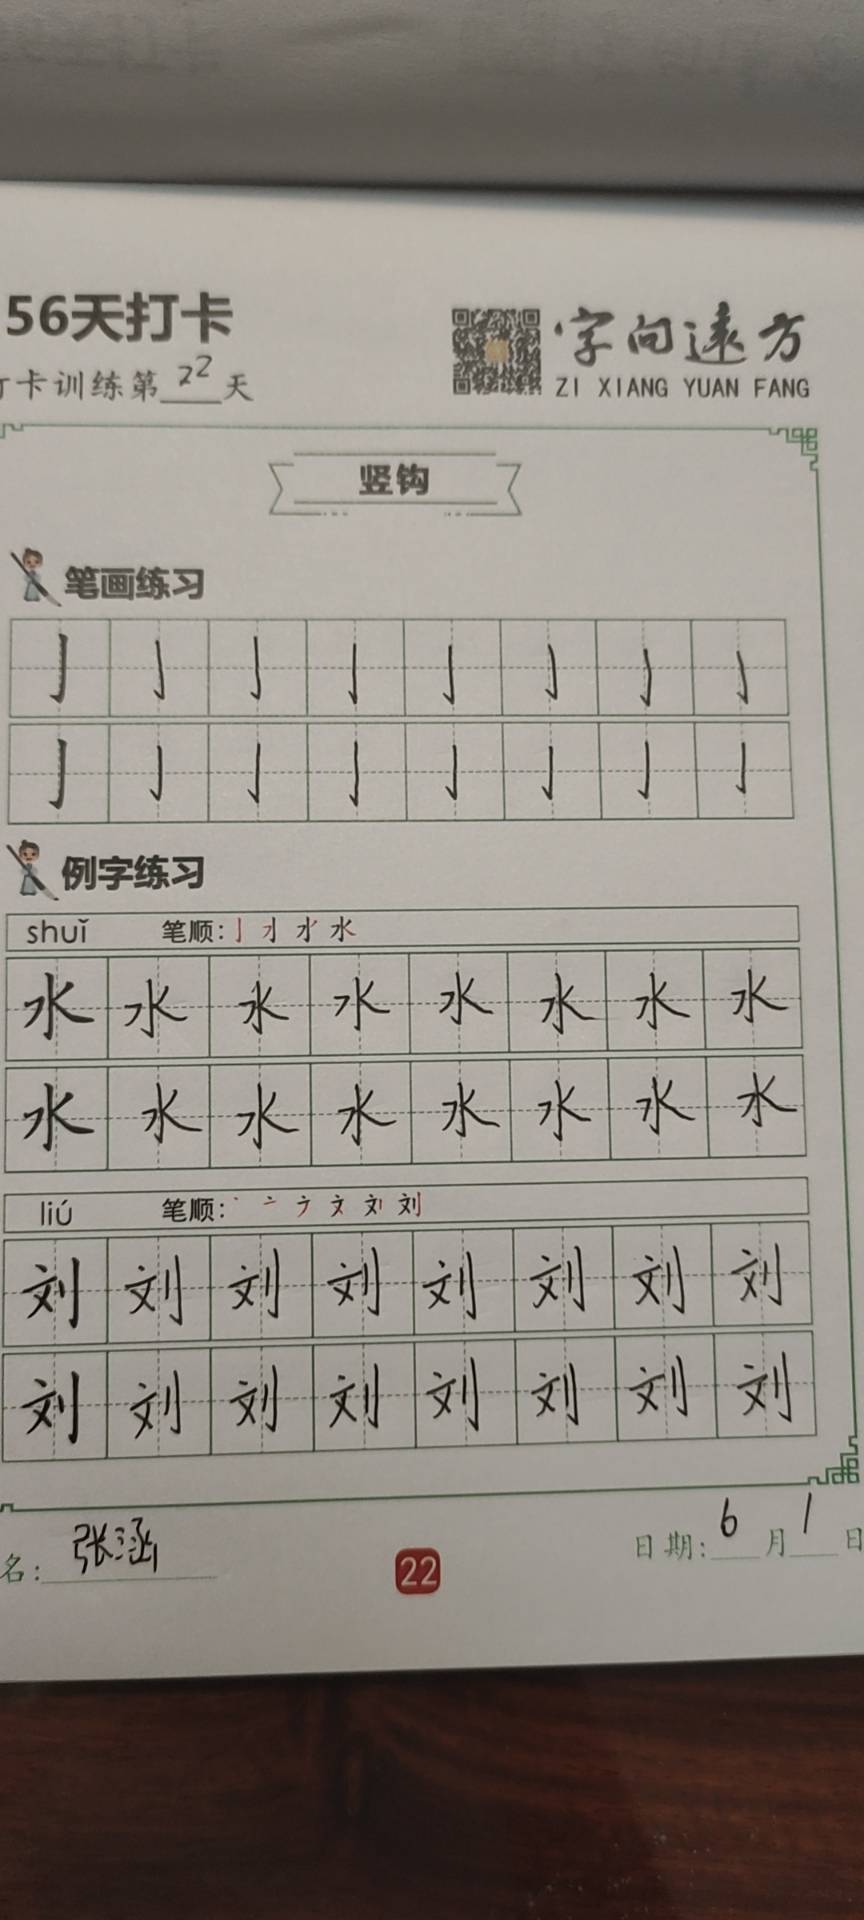 56天打卡
字向远方
卡训练第22天
ZI XIANG YUAN FANG
竖钩
笔画练习
亅亅亅亅亅亅亅亅
亅亅亅亅亅亅亅亅
例字练习
shuǐ 笔顺: 水
水水水水水水水水
水水水水水水水水
liú 笔顺: 丶 亠 ナ 文 刘
刘刘刘刘刘刘刘刘
刘刘刘刘刘刘刘刘
名: 张涵
22
日期: 6月1日